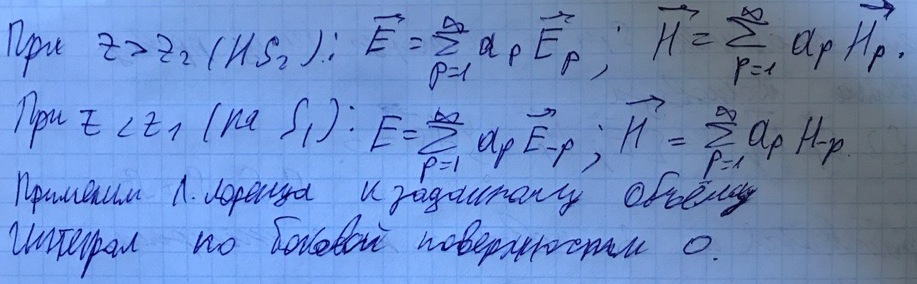 При z > z₂ (на S₂): E⃗ = ∑_{p=1}^{∞} a_p E⃗_p; H⃗ = ∑_{p=1}^{∞} a_p H⃗_p.
При z < z₁ (на S₁): E = ∑_{p=1}^{∞} a_p E⃗_{-p}; H⃗ = ∑_{p=1}^{∞} a_p H_{-p}.
Применим Л. Лоренца к заданному объёму
Интеграл по боковой поверхностям 0.